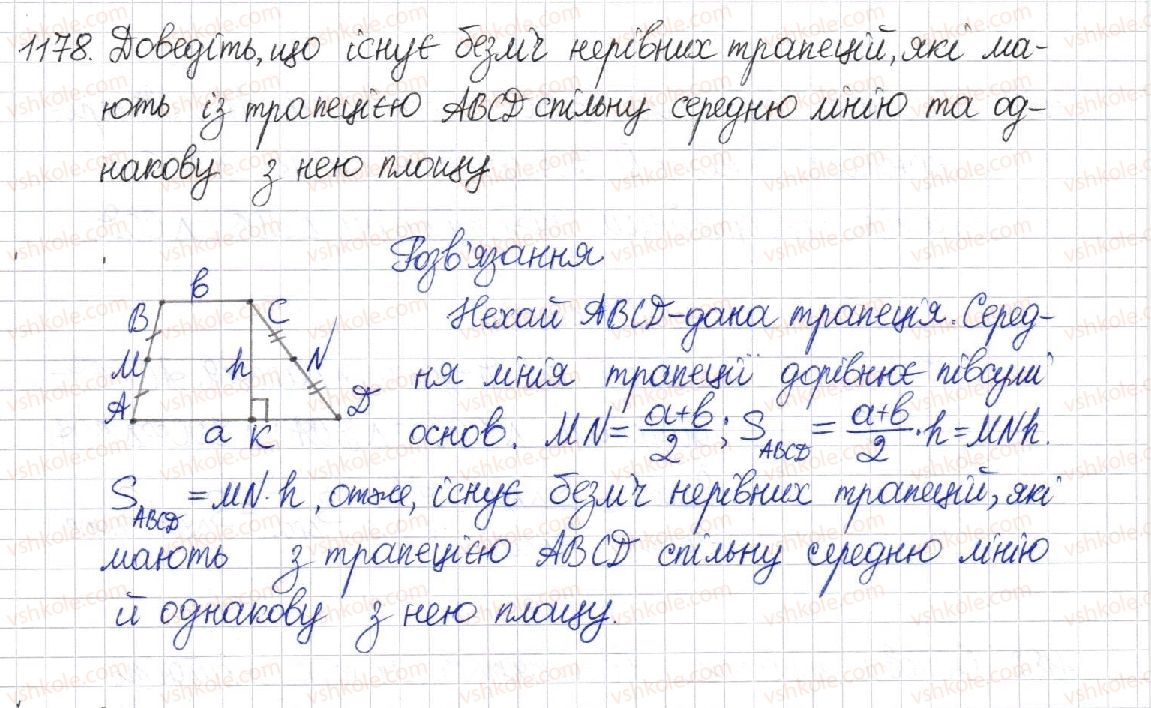 1178. Доведіть, що існує безліч нерівних трапецій, які ма-
ють із трапецією ABCD спільну середню лінію та од-
накову з нею площу
Розв'язання
b
B C
M h N
A a K D
Нехай ABCD-дана трапеція. Серед-
ня лінія трапеції дорівнює півсумі
основ. MN = (a+b)/2; S_ABCD = (a+b)/2 · h = MNh.
S_ABCD = MN·h, отже, існує безліч нерівних трапецій, які
мають з трапецією ABCD спільну середню лінію
й однакову з нею площу.